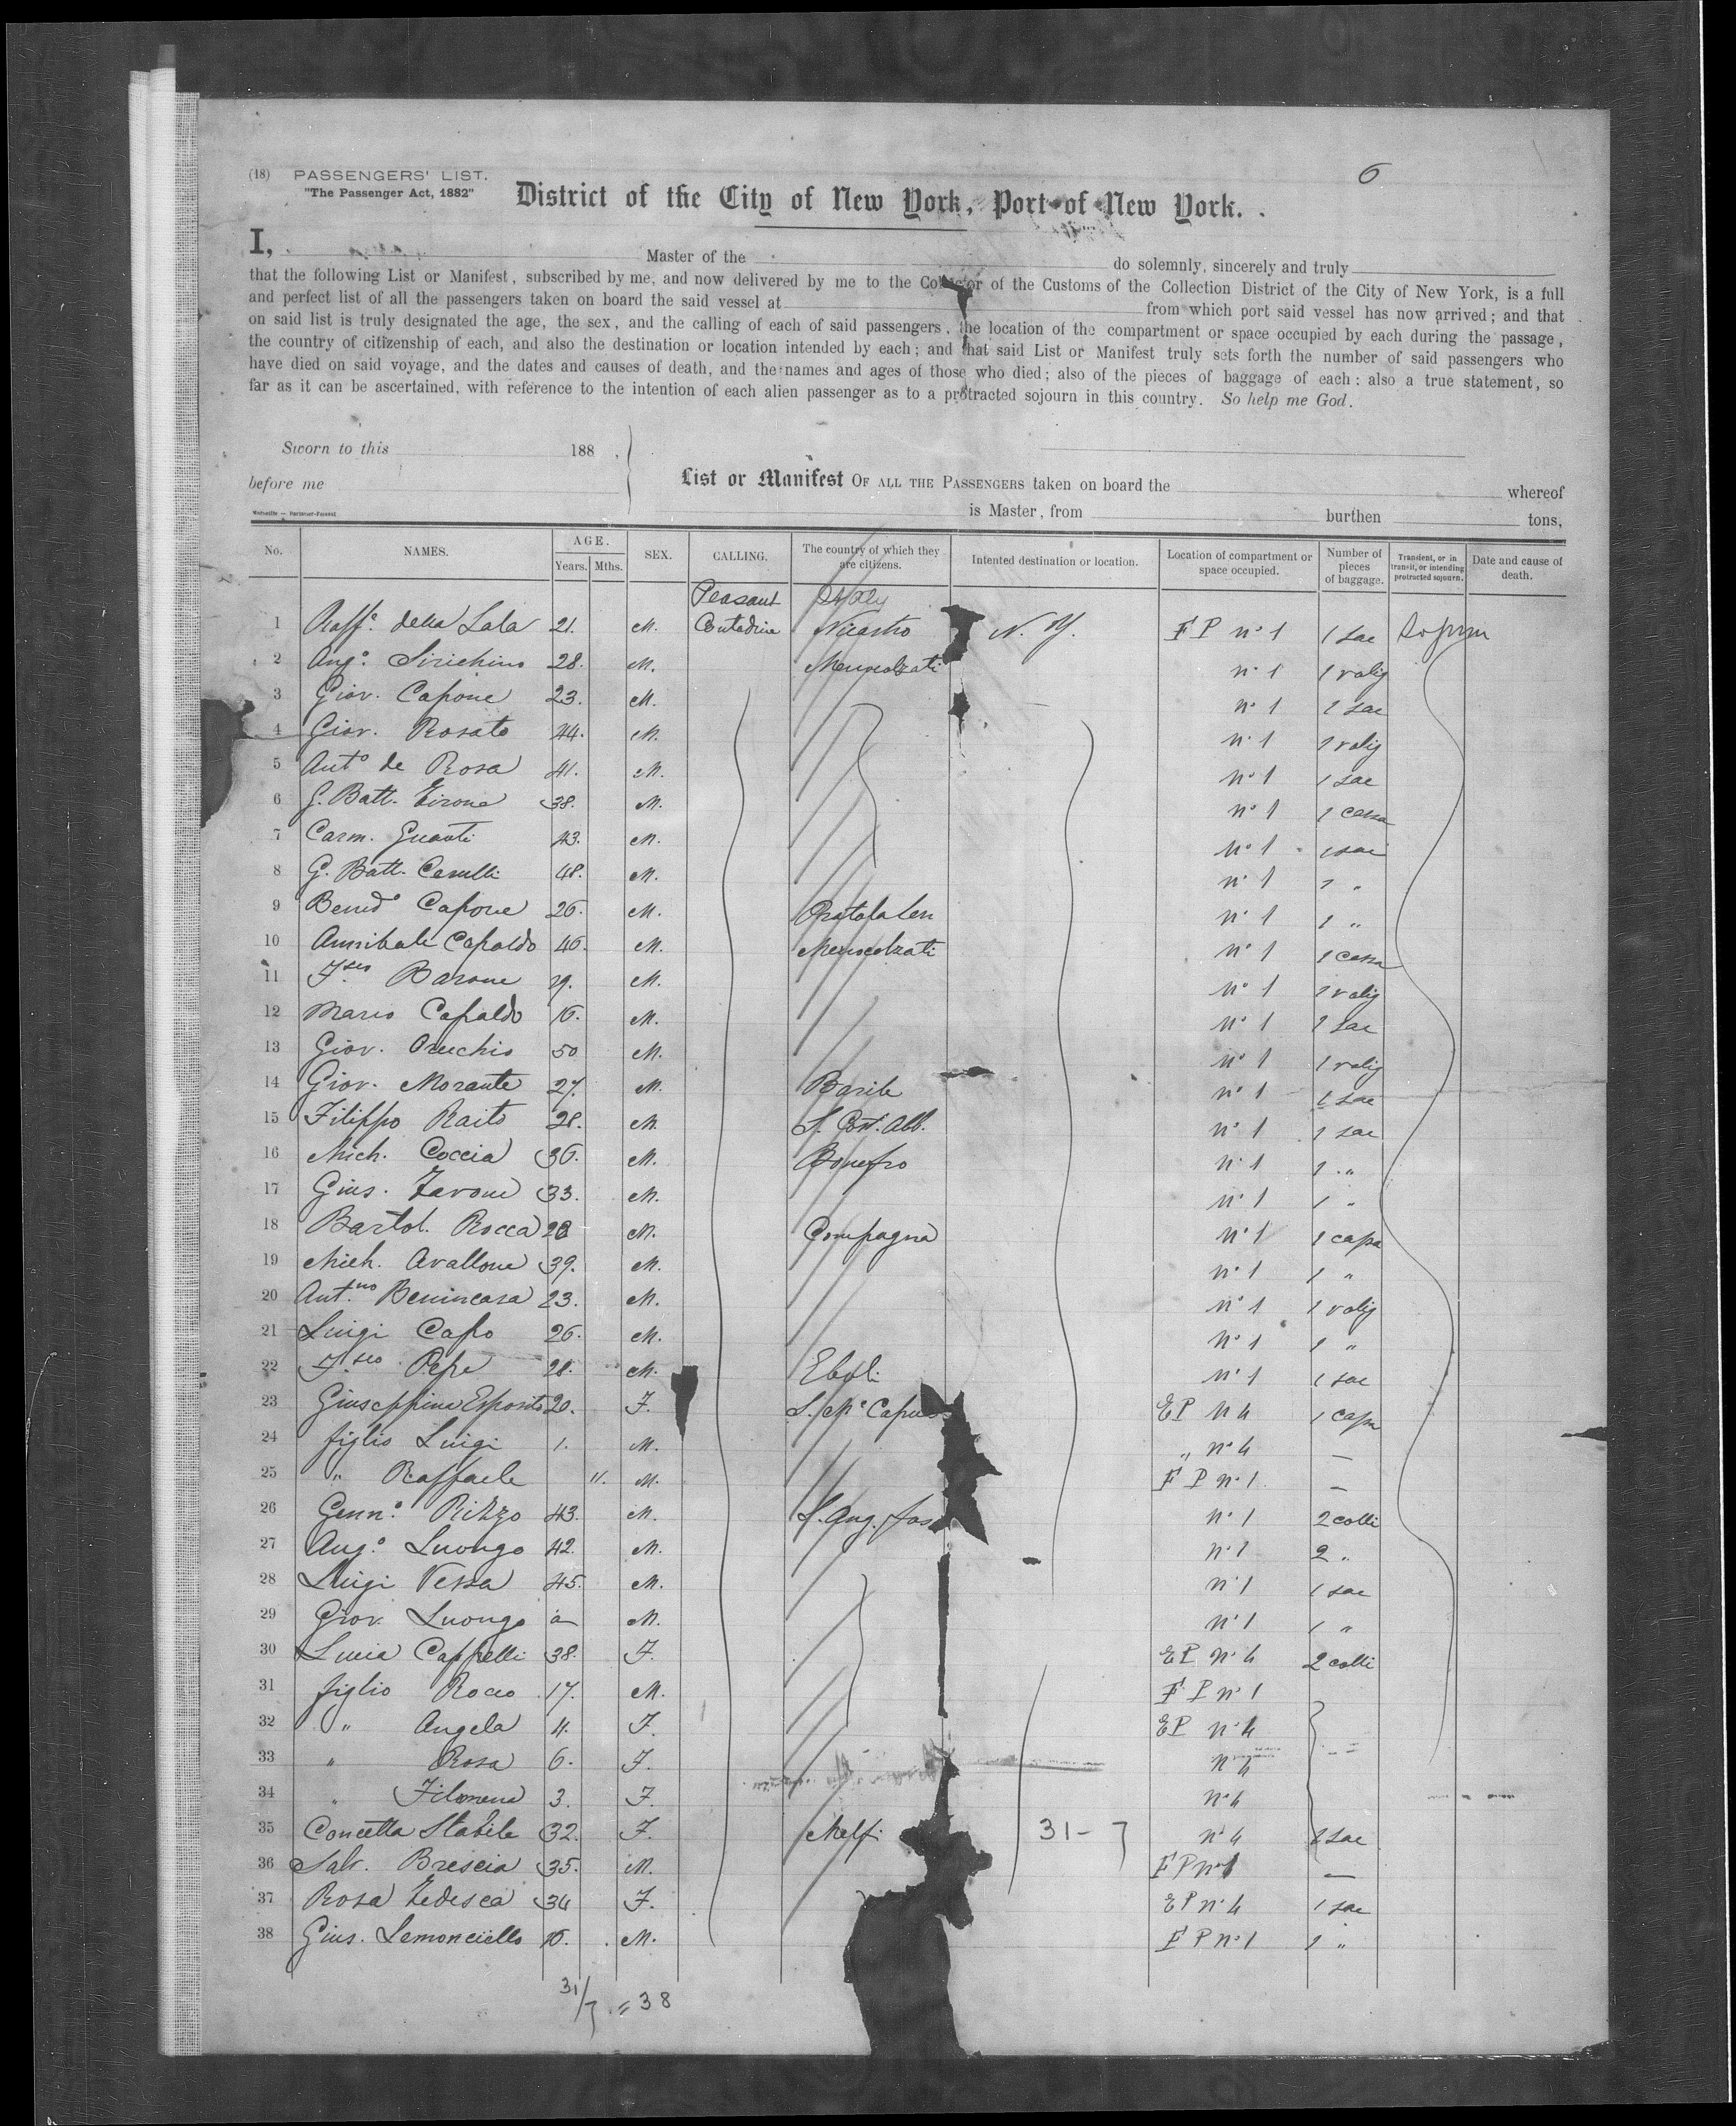 6
(18) PASSENGERS' LIST.
"The Passenger Act, 1882"
District of the City of New York, Port of New York.
I, Master of the do solemnly, sincerely and truly
that the following List or Manifest, subscribed by me, and now delivered by me to the Collector of the Customs of the Collection District of the City of New York, is a full
and perfect list of all the passengers taken on board the said vessel at from which port said vessel has now arrived; and that
on said list is truly designated the age, the sex, and the calling of each of said passengers, the location of the compartment or space occupied by each during the passage,
the country of citizenship of each, and also the destination or location intended by each; and that said List or Manifest truly sets forth the number of said passengers who
have died on said voyage, and the dates and causes of death, and the names and ages of those who died; also of the pieces of baggage of each: also a true statement, so
far as it can be ascertained, with reference to the intention of each alien passenger as to a protracted sojourn in this country. So help me God.
Sworn to this 188
before me
List or Manifest OF ALL THE PASSENGERS taken on board the whereof
is Master, from burthen tons,
No. NAMES. AGE. Years. Mths. SEX. CALLING. The country of which they are citizens. Intented destination or location. Location of compartment or space occupied. Number of pieces of baggage. Transient, or in transit, or intending protracted sojourn. Date and cause of death.
Peasant Italy
1 Raff.o della Sala 21. M. Contadino Nicastro N. Y. F P n° 1 1 sac
2 Ang.o 28. M. n° 1 1 valig
3 Giov. Capone 23. M. n° 1 1 sac
4 Giov. Rosato 44. M. n° 1 1 valig
5 Ant.o de Rosa 41. M. n° 1 1 sac
6 G. Batt. Zirone 38. M. n° 1 1 cassa
7 Carm. Guanti 43. M. n° 1 1 sac
8 G. Batt. 48. M. n° 1 1 "
9 Bened.o Capone 26. M. n° 1 1 "
10 Annibale Capaldo 46. M. n° 1 1 cassa
11 F.sco Barone M. n° 1 1 valig
12 Mario Capaldo 16. M. n° 1 1 sac
13 Giov. 50 M. n° 1 1 valig
14 Giov. Morante 27. M. Barile n° 1 1 sac
15 Filippo Raito 28. M. n° 1 1 sac
16 Mich. Coccia 36. M. Bonefro n° 1 1 "
17 Gius. 33. M. n° 1 1 "
18 Bartol. Rocca M. Campagna n° 1 1 capa
19 Mich. Avallone 39. M. n° 1 1 "
20 Ant.no Benincasa 23. M. n° 1 1 valig
21 Luigi Capo 26. M. n° 1 1 "
22 F.sco Pepe 28. M. Eboli n° 1 1 sac
23 Giuseppina Esposito 20. F. E P N 4 1 capa
24 figlio Luigi 1. M. " n° 4 —
25 " Raffaele 11. M. F P n° 1 —
26 Genn.o Rizzo 43. M. S. Ang. n° 1 2 colli
27 Ang.o Luongo 42. M. n° 1 2 "
28 Luigi Vessa 45. M. n° 1 1 sac
29 Giov. Luongo M. n° 1 1 "
30 Lucia Cappelli 38. F. E P n° 4 2 colli
31 figlio Rocco 17. M. F P n° 1
32 " Angela 11. F. E P n° 4
33 " Rosa 6. F. n° 4
34 " Filomena 3. F. n° 4
35 Concetta Stabile 32. F. Melfi 31 - 7 n° 4 1 sac
36 Salv. Brescia 35. M. F P n° 1 —
37 Rosa Tedesca 34 F. E P n° 4 1 sac
38 Gius. Lemonciello M. F P n° 1 1 "
31/7 = 38